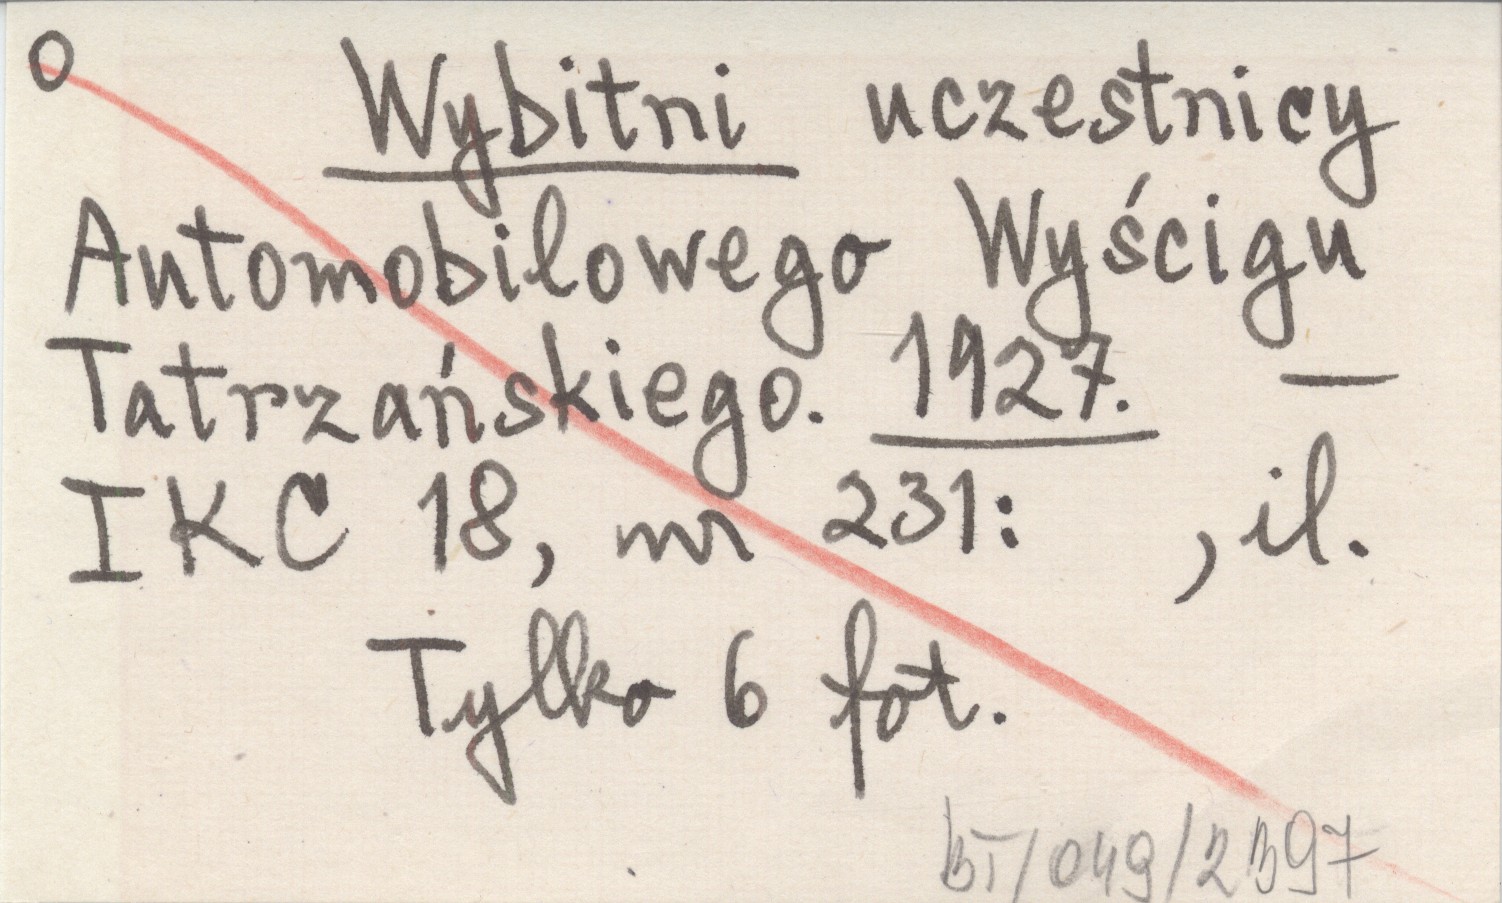 O Wybitni uczestnicy
Automobilowego Wyścigu
Tatrzańskiego. 1927. —
IKC 18, nr 231: , il.
Tylko 6 fot.
BT/049/2397